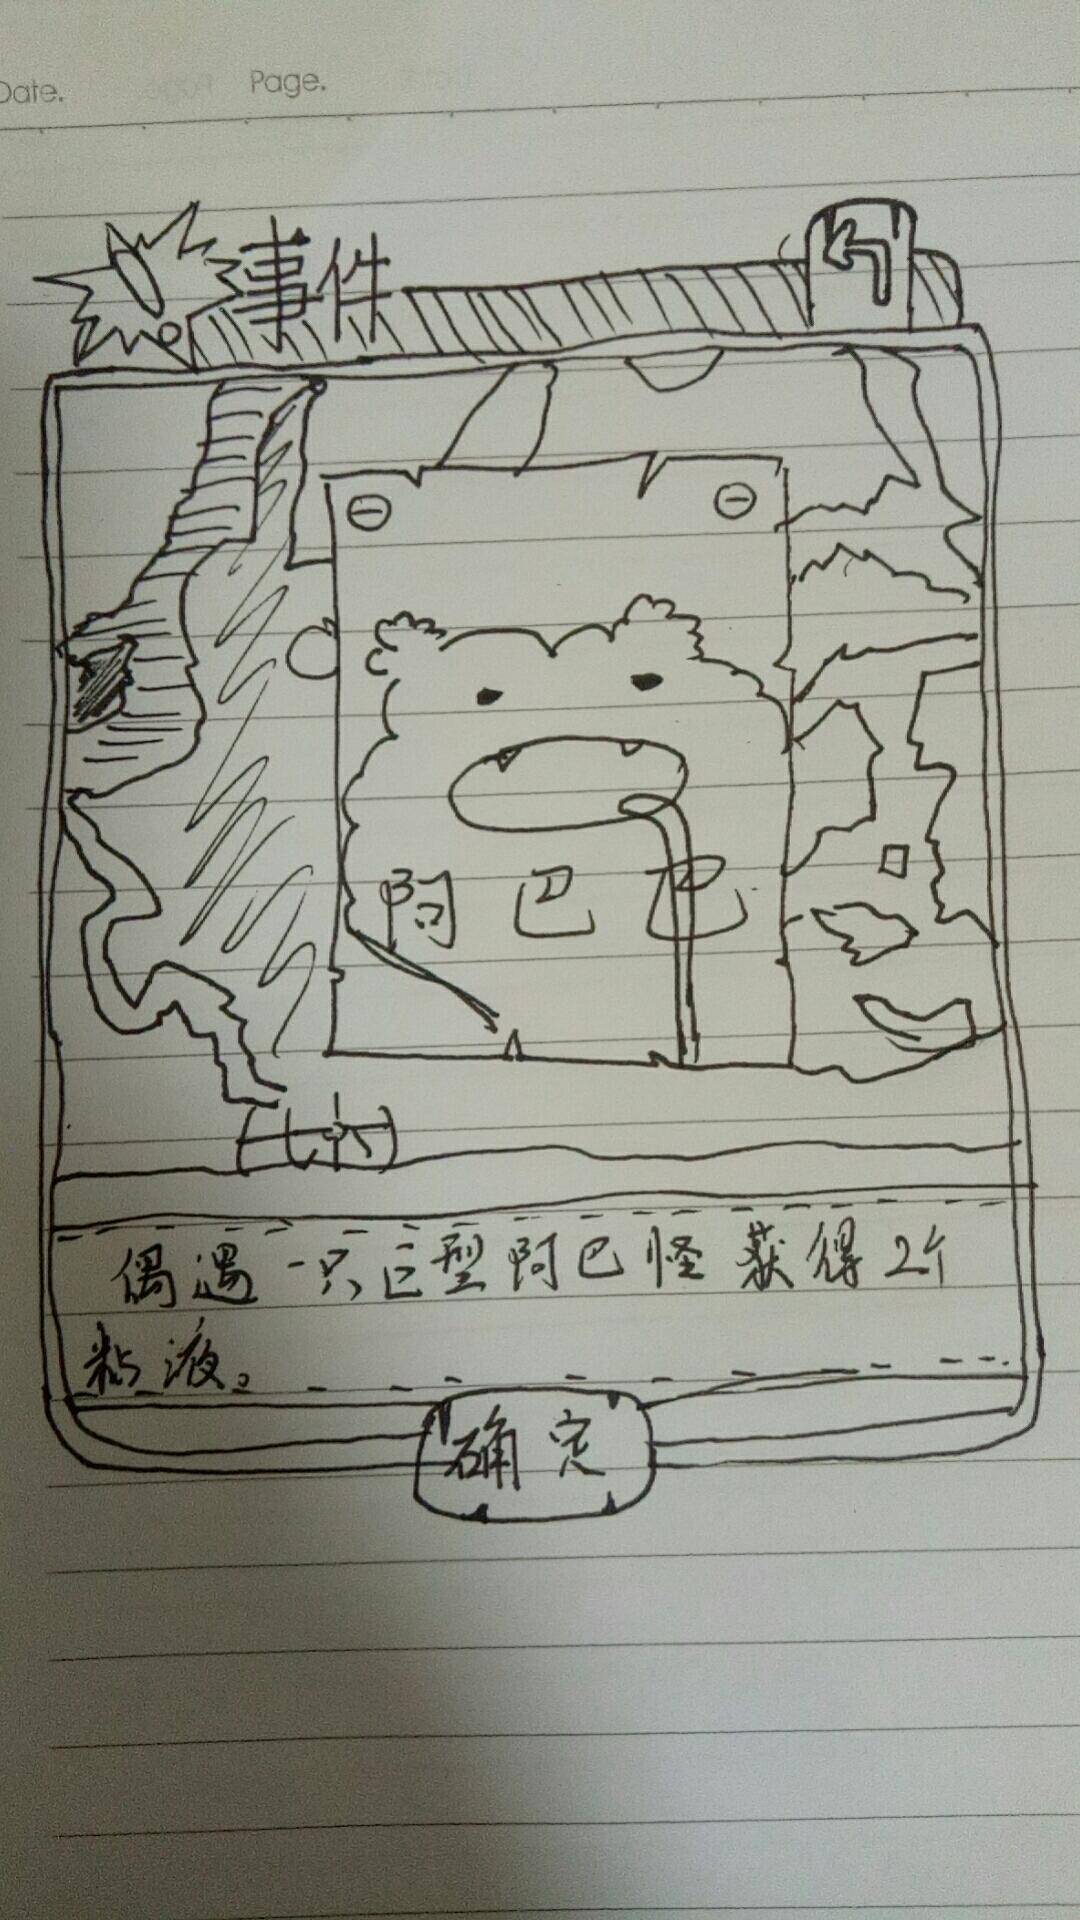 Date.
Page.
事件
阿巴巴
偶遇一只巨型阿巴怪获得2个
粘液。
确定